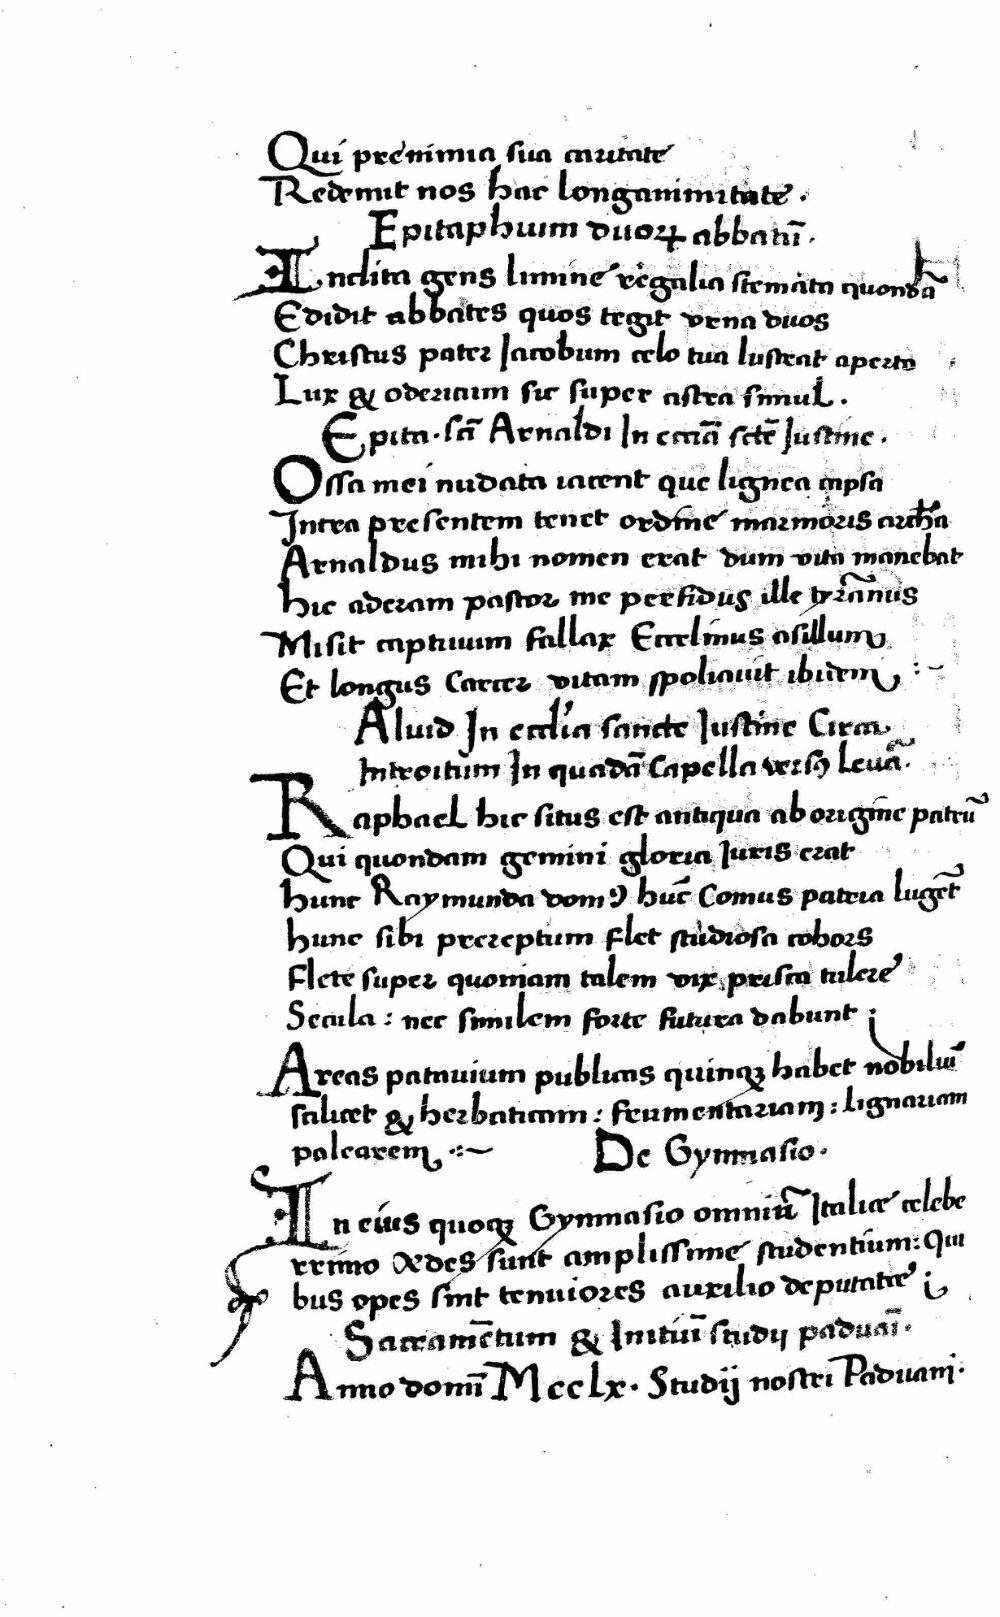 Qui prenimia sua caritate
Redemit nos hac longanimitate.
Epitaphium duoꝝ abbatū.
Inclita gens limine regalia stemata quondā
Edidit abbates quos tegit vrna duos
Christus pater Jacobum celo tua lustrat aperto
Lux & odericum sic super astra simul.
Epita. scī Arnaldi In ecciā sctē Justine.
Ossa mei nudata iacent que lignea capsa
Intra presentem tenet ordine marmoris archa
Arnaldus mihi nomen erat dum vita manebat
hic aderam pastor me perfidus ille tyrānus
Misit captiuum fallax Eccelinus asillum
Et longus Carcer vitam spoliauit ibidem :~
Aluid In ecclia sancte Justine Circa
Introitum In quadā Capella versꝰ leuā.
Raphael hic situs est antiqua ab origine patrū
Qui quondam gemini gloria Juris erat
hunc Raymunda domꝰ hūc Comus patria lugēt
hunc sibi prereptum flet studiosa cohors
flete super quoniam talem vix prisca tulere
Secula: nec similem forte futura dabunt;
Areas patauium publicas quinqꝫ habet nobiliū
salicet & herbaticam: frumentariam: lignariam
palearem :~ De Gymnasio.
In eius quoqꝫ Gymnasio omniū Italiæ celebe
rrimo Ædes sunt amplissime studentium: Qui
bus opes sint tenuiores auxilio deputatæ;
Sacramētum & Initiū studij paduāi.
Anno domī Mcclx. Studij nostri Paduani.